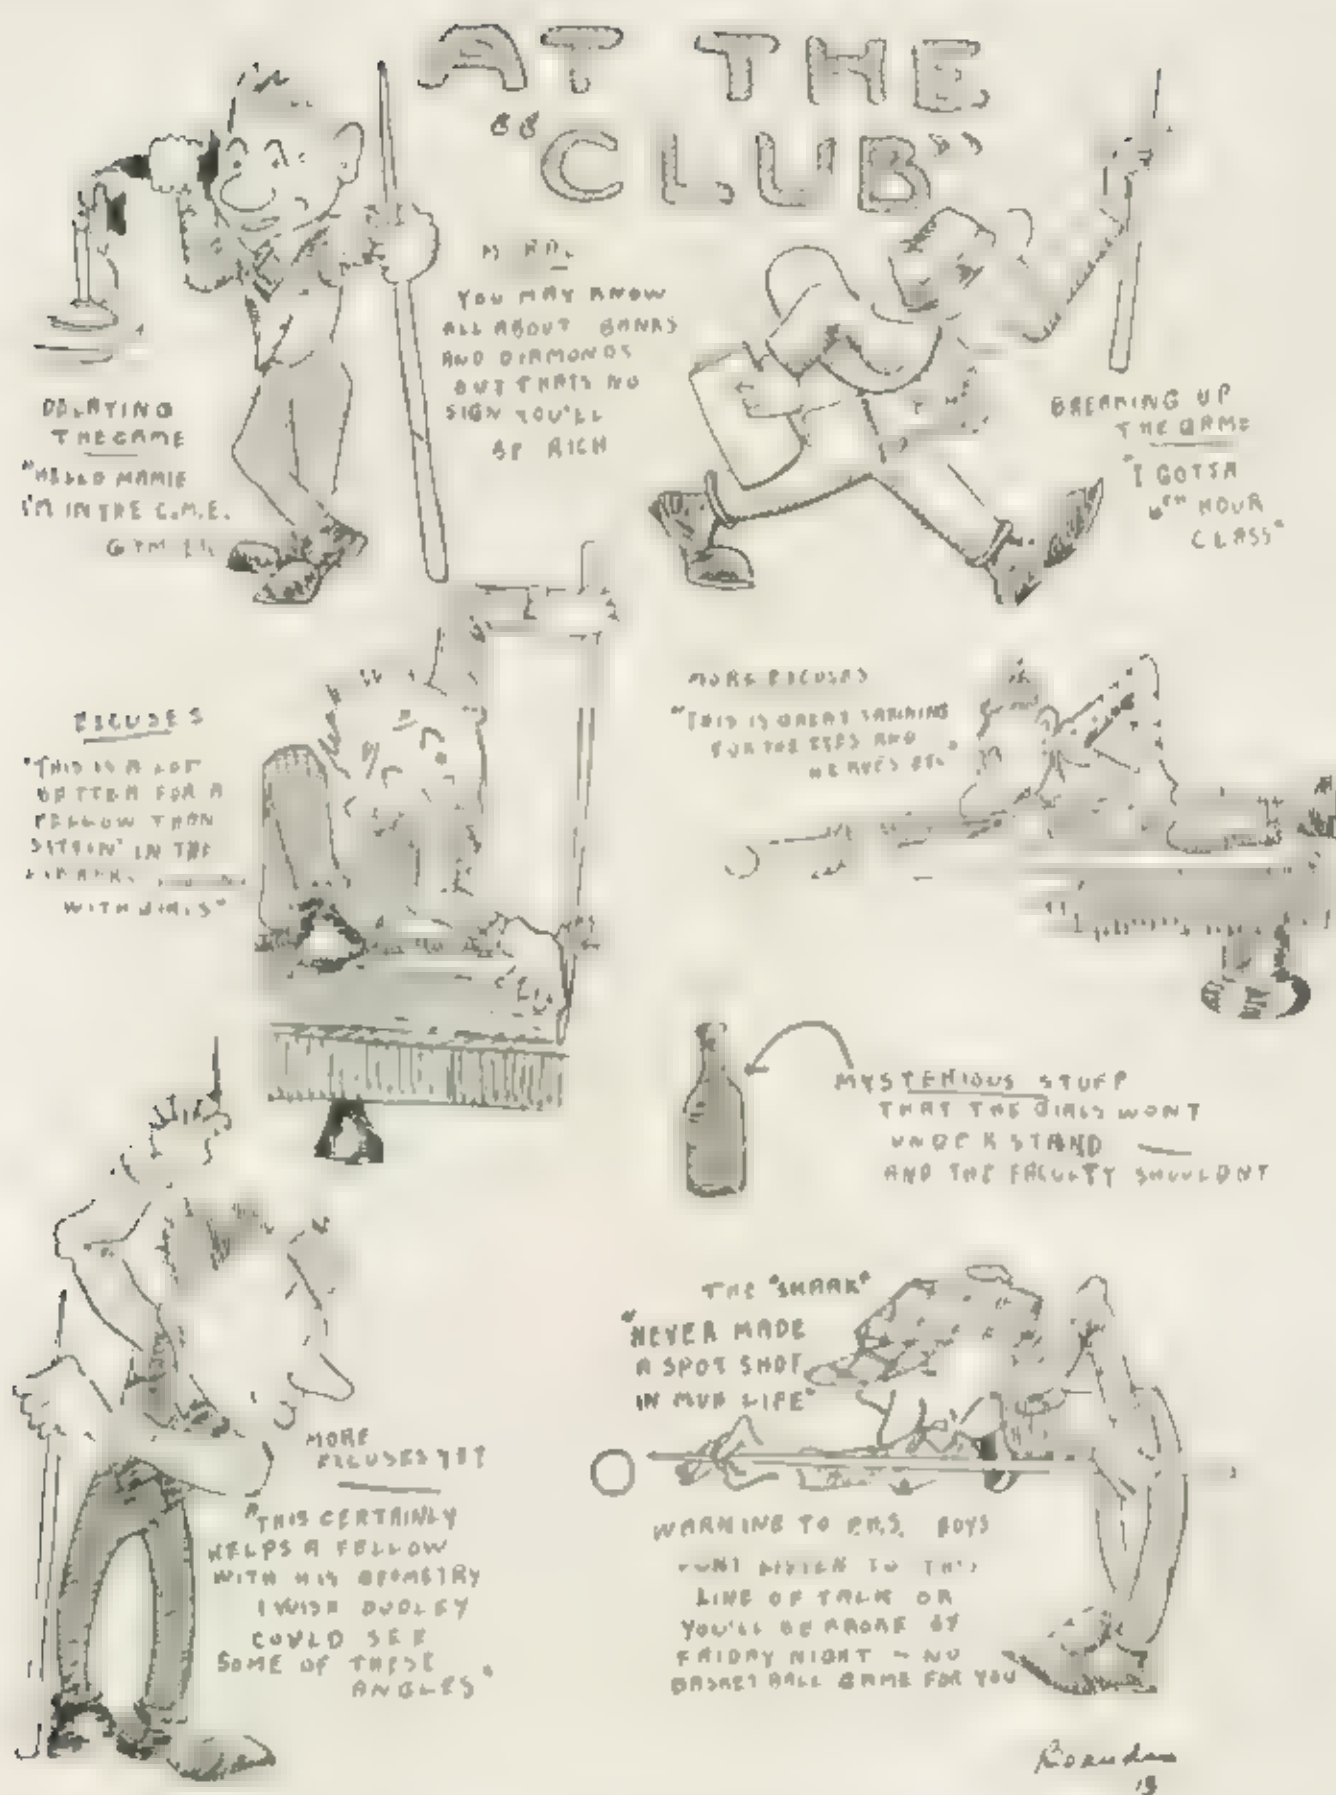 AT THE
"CLUB"
YOU MAY KNOW
ALL ABOUT BANKS
AND DIAMONDS
BUT THATS NO
SIGN YOU'LL
BE RICH
DELAYING
THE GAME
"HELLO MAMIE
I'M IN THE C.M.E.
GYM
BREAKING UP
THE GAME
"I GOTTA
6TH HOUR
CLASS"
EXCUSES
"THIS IS A LOT
BETTER FOR A
FELLOW THAN
SITTIN' IN THE
WITH GIRLS"
MORE EXCUSES
"THIS IS GREAT TRAINING
FOR THE EYES AND
NERVES ETC"
MYSTERIOUS STUFF
THAT THE GIRLS WONT
UNDERSTAND —
AND THE FACULTY SHOULDNT
THE "SHARK"
"NEVER MADE
A SPOT SHOT
IN MUH LIFE"
MORE
EXCUSES YET
"THIS CERTAINLY
HELPS A FELLOW
WITH HIS GEOMETRY
I WISH DUDLEY
COULD SEE
SOME OF THESE
ANGLES"
WARNING TO P.H.S. BOYS
DONT LISTEN TO THIS
LINE OF TALK OR
YOU'LL BE BROKE BY
FRIDAY NIGHT – NO
BASKET BALL GAME FOR YOU